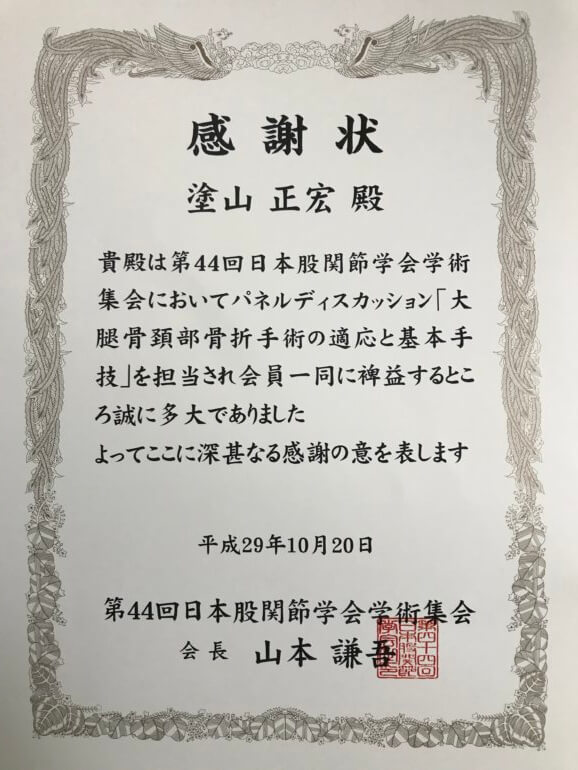 感謝状
塗山 正宏 殿
貴殿は第44回日本股関節学会学術
集会においてパネルディスカッション「大
腿骨頚部骨折手術の適応と基本手
技」を担当され会員一同に裨益するとこ
ろ誠に多大でありました
よってここに深甚なる感謝の意を表します
平成29年10月20日
第44回日本股関節学会学術集会
会長 山本 謙吾